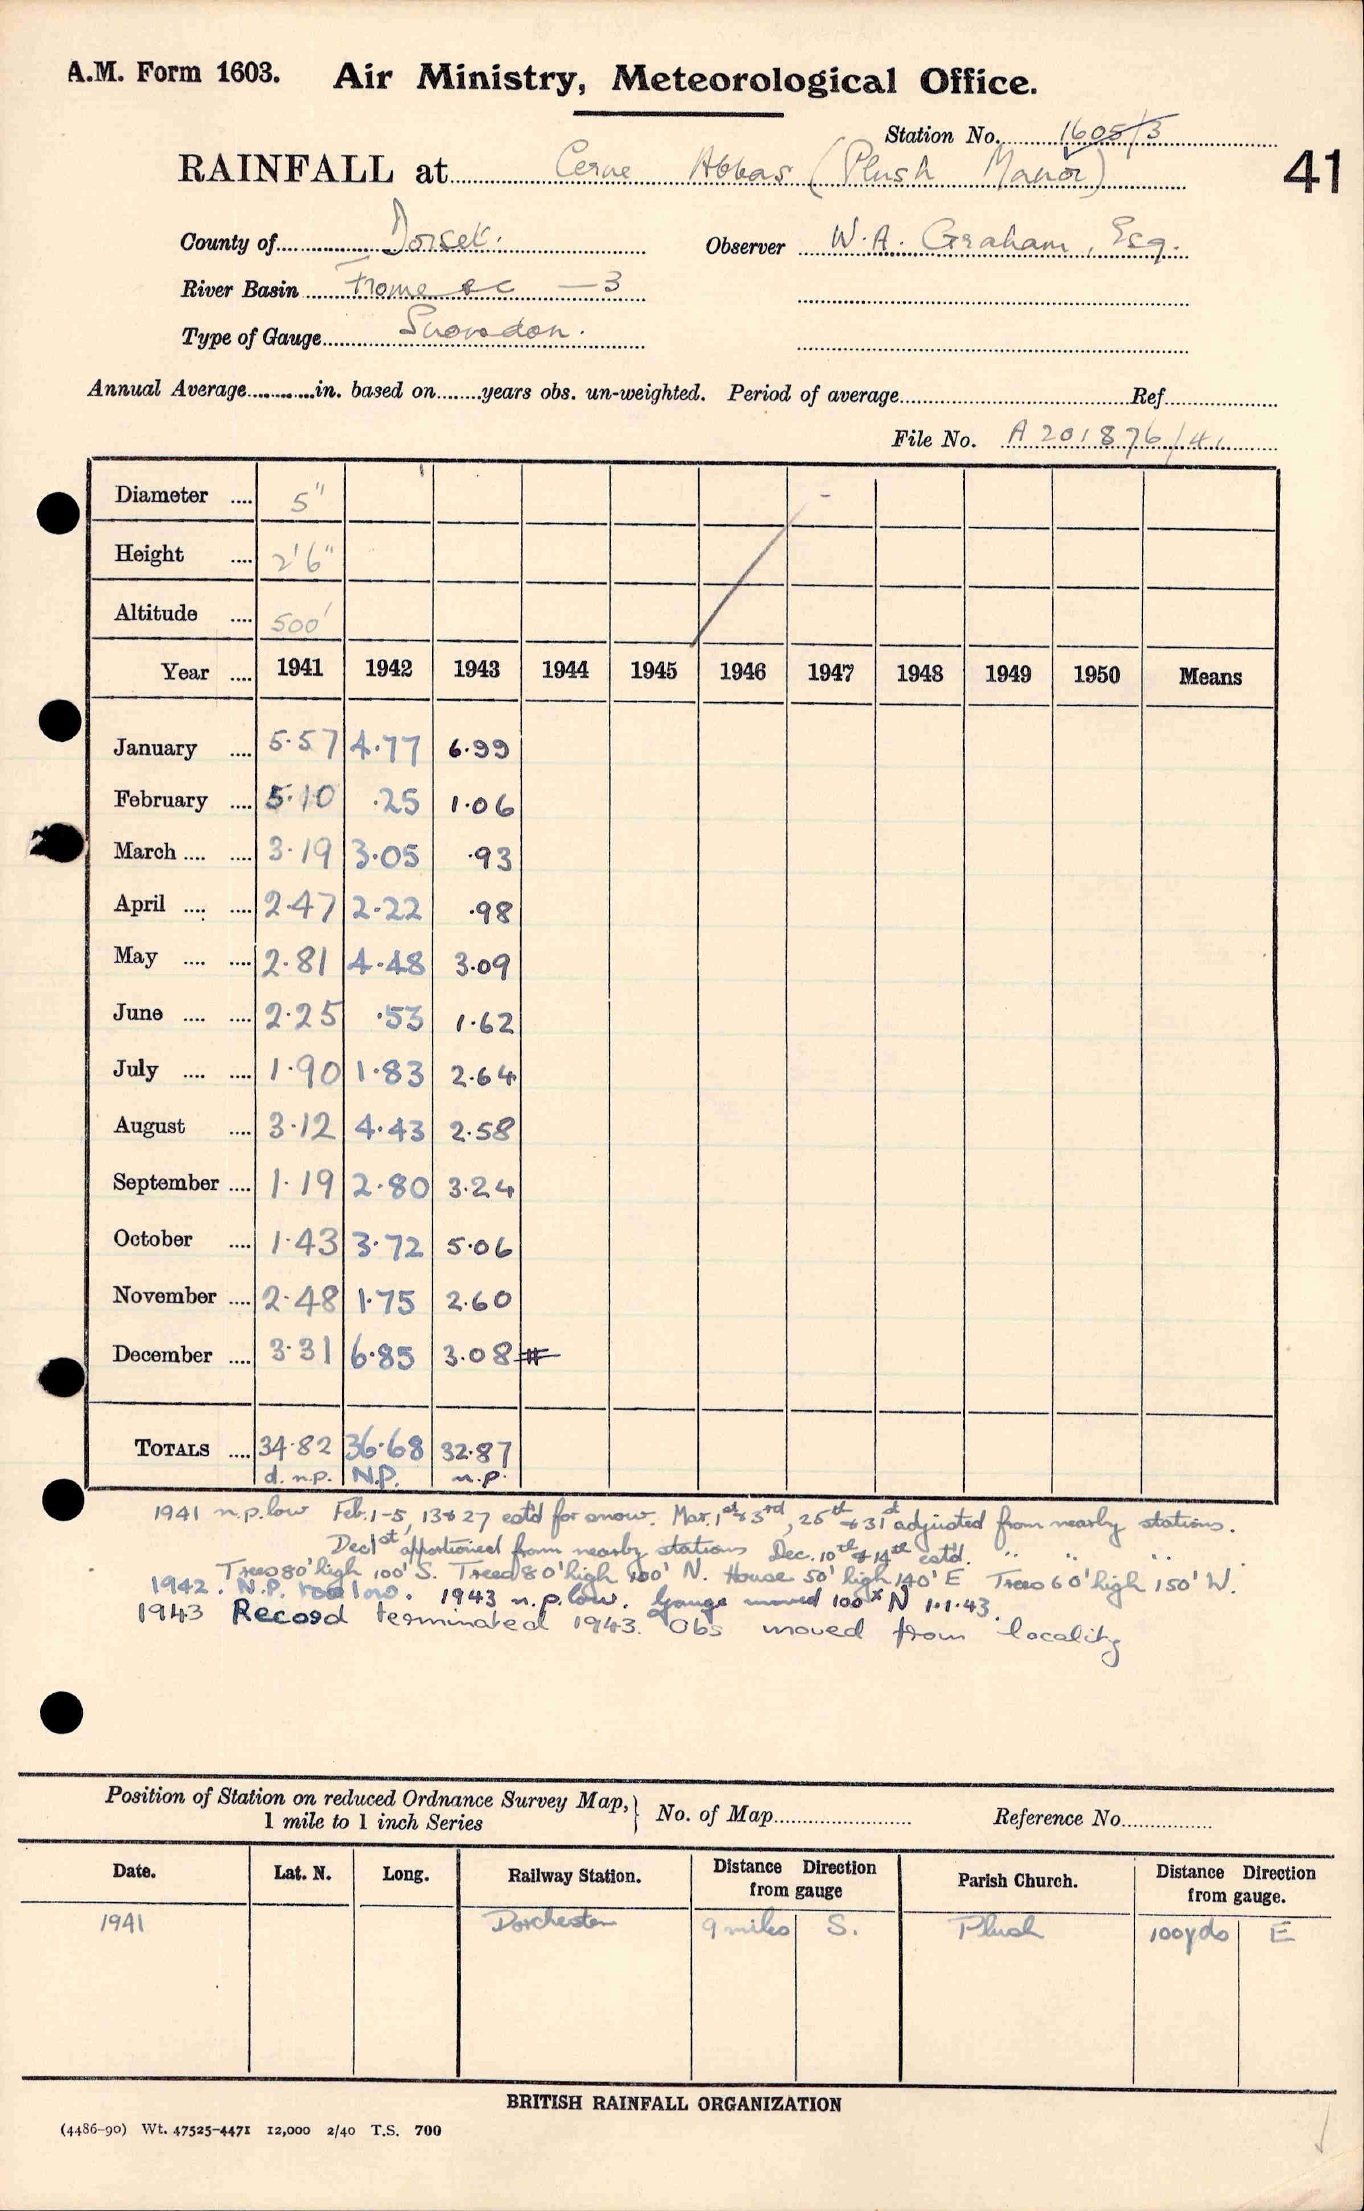 A.M. Form 1603. Air Ministry, Meteorological Office.
Station No. 1605/3
RAINFALL at Cerne Abbas (Plush Manor) 41
County of Dorset. Observer W.A. Graham, Esq.
River Basin Frome &c — 3
Type of Gauge Snowdon.
Annual Average in. based on years obs. un-weighted. Period of average Ref
File No. A 201876/41
Diameter 5"
Height 2'6"
Altitude 500'
Year 1941 1942 1943 1944 1945 1946 1947 1948 1949 1950 Means
January 5.57 4.77 6.99
February 5.10 .25 1.06
March 3.19 3.05 .93
April 2.47 2.22 .98
May 2.81 4.48 3.09
June 2.25 .53 1.62
July 1.90 1.83 2.64
August 3.12 4.43 2.58
September 1.19 2.80 3.24
October 1.43 3.72 5.06
November 2.48 1.75 2.60
December 3.31 6.85 3.08 #
TOTALS 34.82 36.68 32.87
d. n.p. N.P. n.p.
1941 n.p. low Feb. 1-5, 13 & 27 est'd for snow. Mar. 1st & 3rd, 25th & 31st adjusted from nearby stations.
Dec 1st apportioned from nearby stations Dec. 10th & 14th est'd. " " " .
Trees 80' high 100' S. Trees 80' high 100' N. House 50' high 140' E Trees 60' high 150' W.
1942. N.P. low. 1943 n.p. low. Gauge moved 100x N 1.1.43.
1943 Record terminated 1943. Obs moved from locality
Position of Station on reduced Ordnance Survey Map, 1 mile to 1 inch Series } No. of Map Reference No.
Date. Lat. N. Long. Railway Station. Distance Direction from gauge Parish Church. Distance Direction from gauge.
1941 Dorchester 9 miles S. Plush 100yds E
BRITISH RAINFALL ORGANIZATION
(4486-90) Wt. 47525-4471 12,000 2/40 T.S. 700